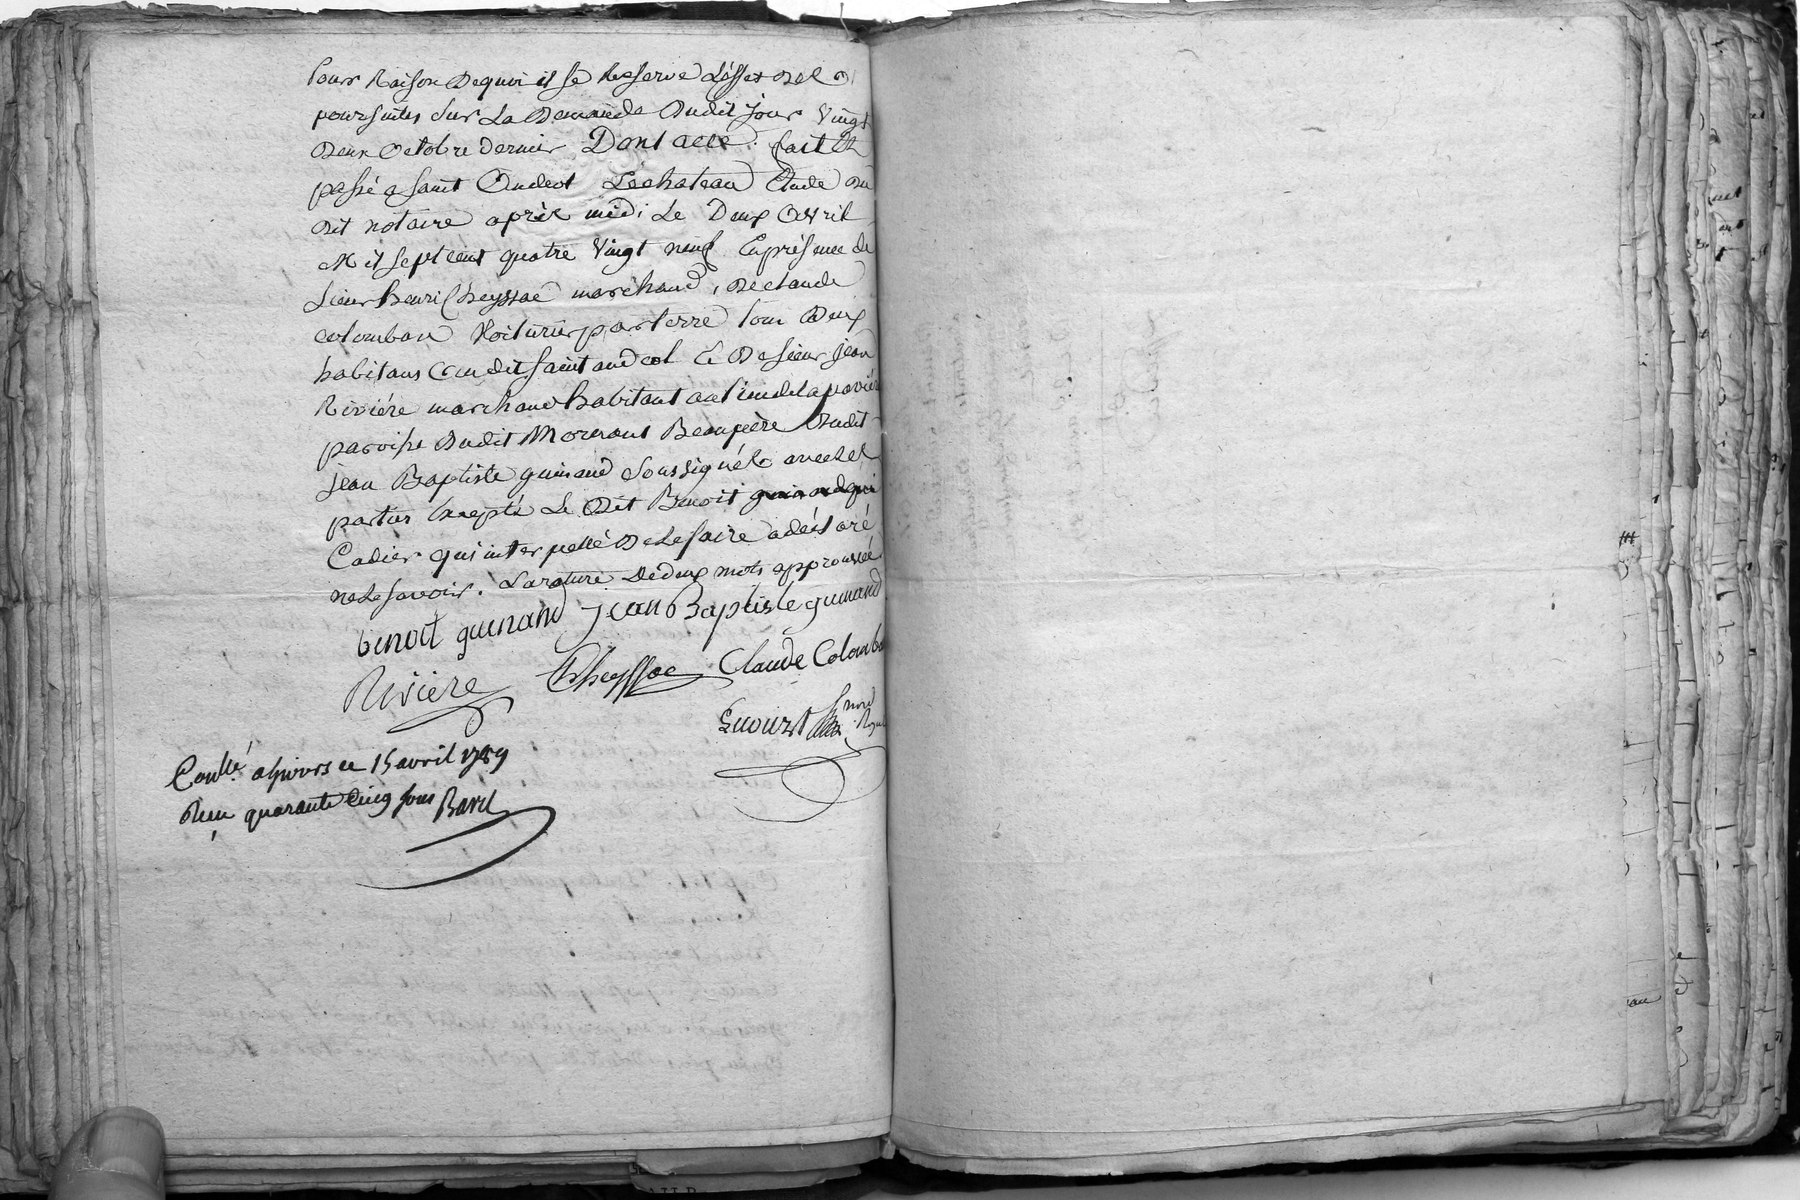 pour Raison dequoi il se Reserve L'effet des
poursuites sur La Demande dudit jour vingt
deux octobre dernier Dont acte. fait et
passé a saint Andeol Lechateau Etude du
dit notaire après midi Le Deux Avril
Mil sept cent quatre vingt neuf En présence de
sieur henri Cheyssac marchand, de claude
colomban voiturier par terre tous deux
habitans Cu dit saint andeol & De sieur jean
Riviére marchand habitant au lieu de la
paroisse dudit Mornant Beaupère dudit
jean Baptiste guinand soussignés avec les
parties Excepté Le Dit Benoit guinand qui
Cadier qui interpellé De Le faire a déclaré
ne Le savoir. La rature de deux mots approuvée
benoit guinand jean Baptiste guinand
Riviere Cheyssac Claude Colomban
not
Conllé a Givors ce 15 avril 1789
Reçu quarante Cinq sous